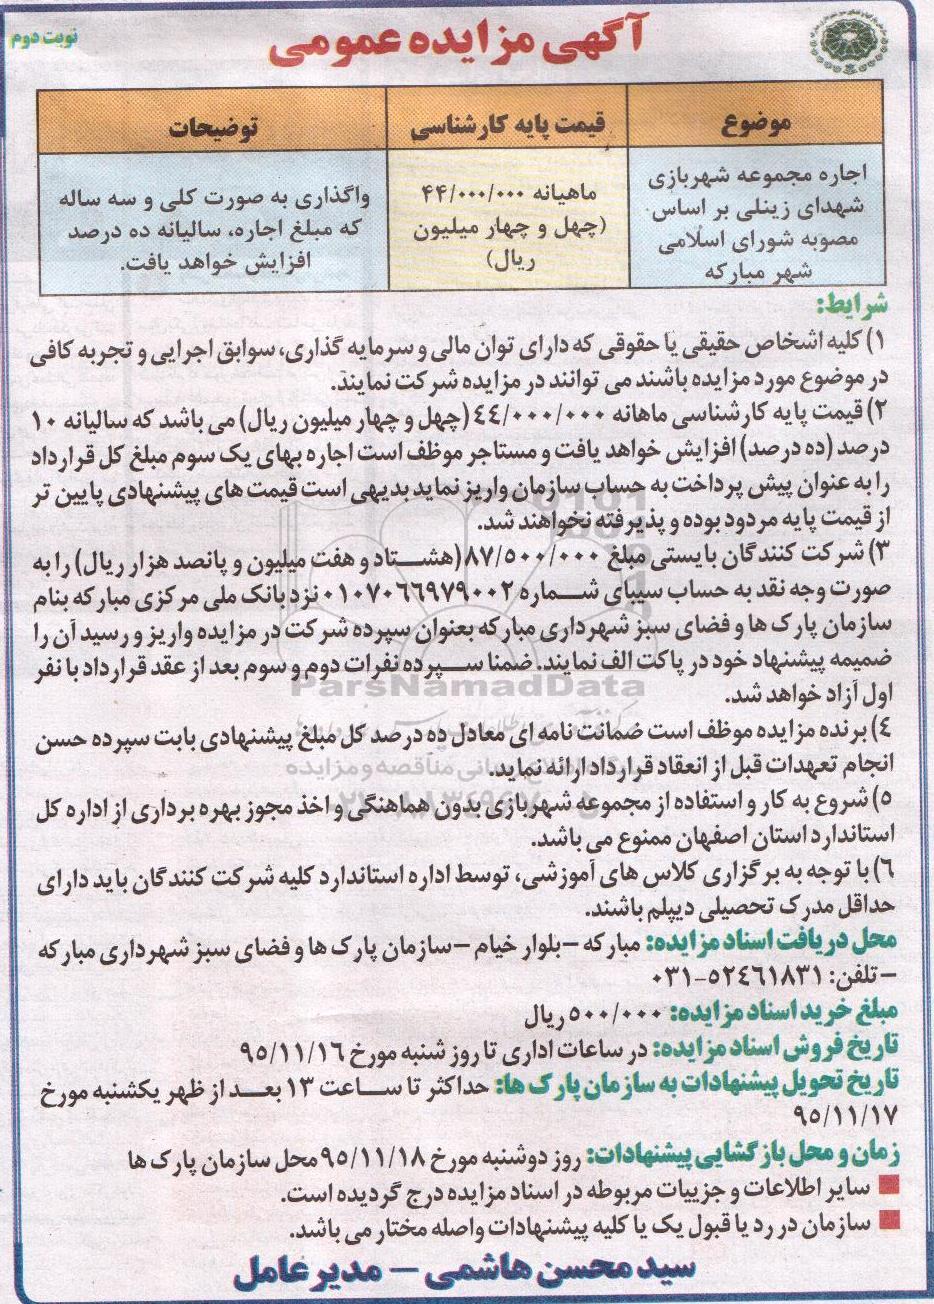 نوبت دوم
آگهی مزایده عمومی
موضوع
قیمت پایه کارشناسی
توضیحات
اجاره مجموعه شهربازی
شهدای زینلی بر اساس
مصوبه شورای اسلامی
شهر مبارکه
ماهیانه ۴۴/۰۰۰/۰۰۰
(چهل و چهار میلیون
ریال)
واگذاری به صورت کلی و سه ساله
که مبلغ اجاره، سالیانه ده درصد
افزایش خواهد یافت.
شرایط:
۱) کلیه اشخاص حقیقی یا حقوقی که دارای توان مالی و سرمایه گذاری، سوابق اجرایی و تجربه کافی
در موضوع مورد مزایده باشند می توانند در مزایده شرکت نمایند.
۲) قیمت پایه کارشناسی ماهانه ۴۴/۰۰۰/۰۰۰ (چهل و چهار میلیون ریال) می باشد که سالیانه ۱۰
درصد (ده درصد) افزایش خواهد یافت و مستاجر موظف است اجاره بهای یک سوم مبلغ کل قرارداد
را به عنوان پیش پرداخت به حساب سازمان واریز نماید بدیهی است قیمت های پیشنهادی پایین تر
از قیمت پایه مردود بوده و پذیرفته نخواهند شد.
۳) شرکت کنندگان بایستی مبلغ ۸۷/۵۰۰/۰۰۰ (هشتاد و هفت میلیون و پانصد هزار ریال) را به
صورت وجه نقد به حساب سیبای شماره ۰۱۰۷۰۶۶۹۷۹۰۰۲ نزد بانک ملی مرکزی مبارکه بنام
سازمان پارک ها و فضای سبز شهرداری مبارکه بعنوان سپرده شرکت در مزایده واریز و رسید آن را
ضمیمه پیشنهاد خود در پاکت الف نمایند. ضمنا سپرده نفرات دوم و سوم بعد از عقد قرارداد با نفر
اول آزاد خواهد شد.
ParsNamadData
۴) برنده مزایده موظف است ضمانت نامه ای معادل ده درصد کل مبلغ پیشنهادی بابت سپرده حسن
انجام تعهدات قبل از انعقاد قرارداد ارائه نماید.
۵) شروع به کار و استفاده از مجموعه شهربازی بدون هماهنگی و اخذ مجوز بهره برداری از اداره کل
استاندارد استان اصفهان ممنوع می باشد.
۶) با توجه به برگزاری کلاس های آموزشی، توسط اداره استاندارد کلیه شرکت کنندگان باید دارای
حداقل مدرک تحصیلی دیپلم باشند.
محل دریافت اسناد مزایده: مبارکه – بلوار خیام – سازمان پارک ها و فضای سبز شهرداری مبارکه
– تلفن: ۵۲۴۶۱۸۳۱-۰۳۱
مبلغ خرید اسناد مزایده: ۵۰۰/۰۰۰ ریال
تاریخ فروش اسناد مزایده: در ساعات اداری تا روز شنبه مورخ ۹۵/۱۱/۱۶
تاریخ تحویل پیشنهادات به سازمان پارک ها: حداکثر تا ساعت ۱۳ بعد از ظهر یکشنبه مورخ
۹۵/۱۱/۱۷
زمان و محل بازگشایی پیشنهادات: روز دوشنبه مورخ ۹۵/۱۱/۱۸ محل سازمان پارک ها
سایر اطلاعات و جزییات مربوطه در اسناد مزایده درج گردیده است.
سازمان در رد یا قبول یک یا کلیه پیشنهادات واصله مختار می باشد.
سید محسن هاشمی – مدیر عامل